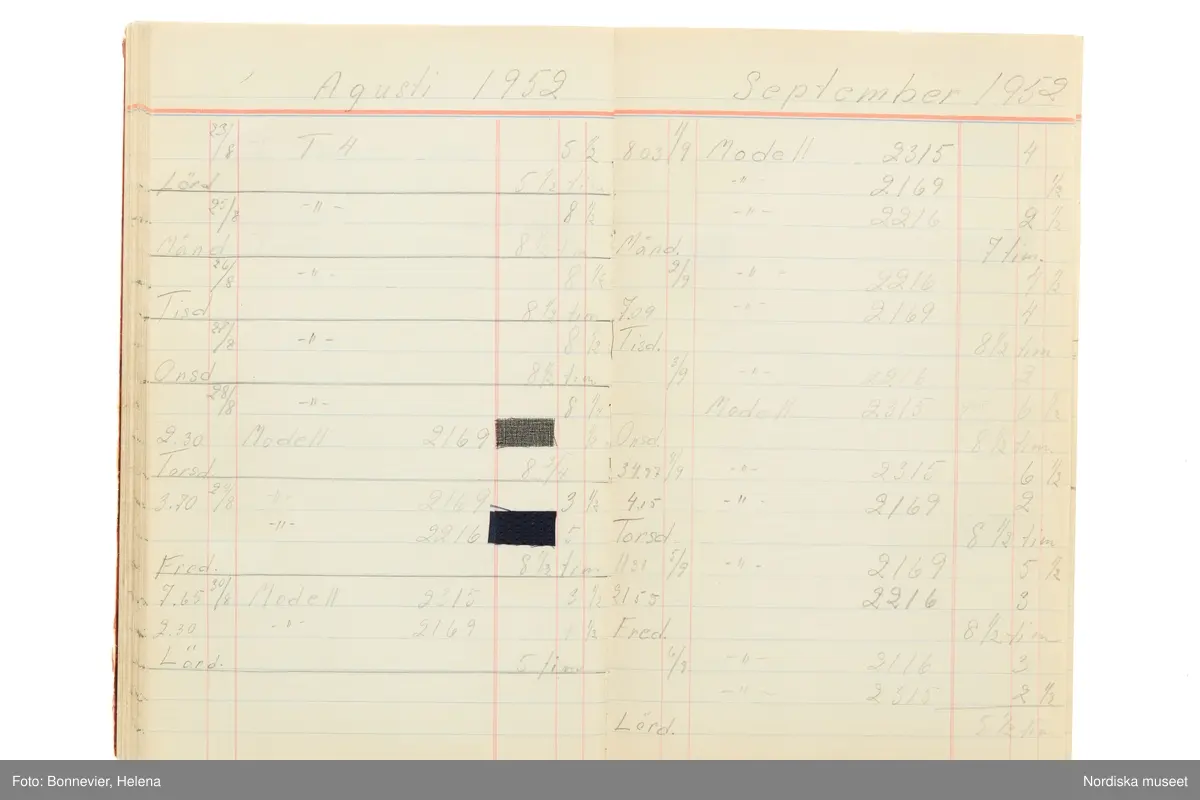 Agusti 1952
23/8 T 4 5 1/2
Lörd 5 1/2 tim
25/8 -"- 8 1/2
Månd 8 1/2 tim
26/8 -"- 8 1/2
Tisd 8 1/2 tim
27/8 -"- 8 1/2
Onsd 8 1/2 tim
28/8 -"- 8 1/2
2.30 Modell 2169 6
Torsd 8 3/4
3.70 29/8 -"- 2169 3 1/2
-"- 2216 5
Fred. 8 1/2 tim
7.65 30/8 Modell 2315 3 1/2
2.30 -"- 2169 1 1/2
Lörd. 5 tim
September 1952
803 1/9 Modell 2315 4
-"- 2169 1/2
-"- 2216 2 1/2
Månd. 7 tim.
2/9 -"- 2216 4 1/2
7.09 -"- 2169 4
Tisd. 8 1/2 tim
3/9 -"- 2216 2
Modell 2315 6 1/2
Onsd. 8 1/2 tim
4/9 -"- 2315 6 1/2
4.15 -"- 2169 2
Torsd. 8 1/2 tim
5/9 -"- 2169 5 1/2
2155 2216 3
Fred. 8 1/2 tim
6/9 -"- 2116 3
-"- 2315 2 1/2
Lörd. 5 1/2 tim
Foto: Bonnevier, Helena
Nordiska museet